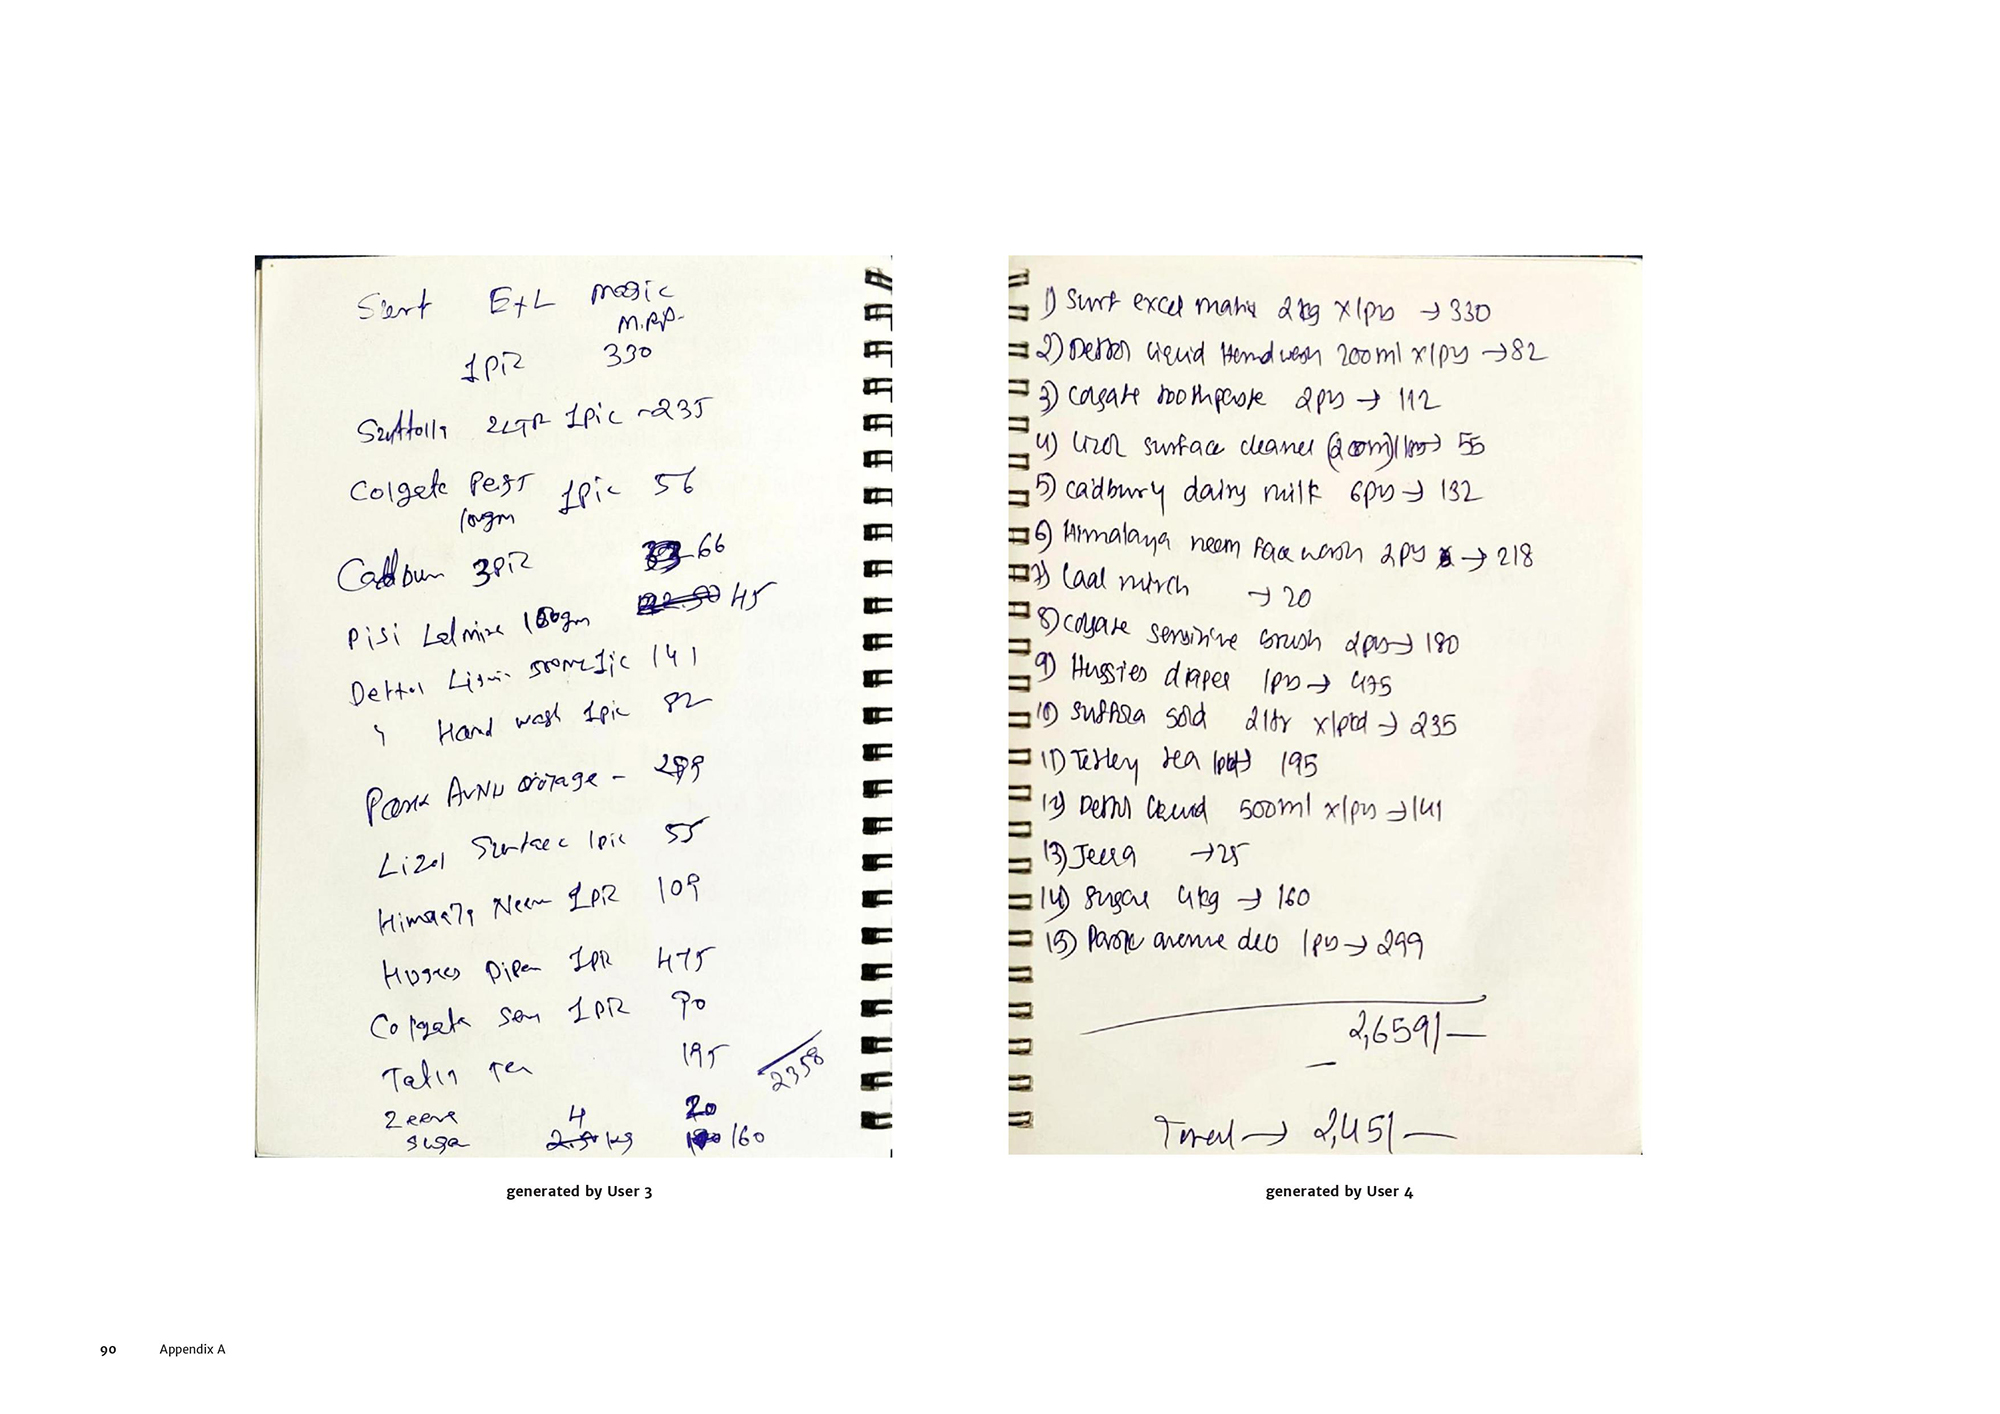 Surf Exl magic
M.R.P.
1PIC 330
2LTR 1pic ~235
Colgate Pest 1pic 56
100gm
Cadbum 3PIC 66
Pisi Lalmirc 100gm 45
Dettol 500ML 1ic 141
" Hand wash 1pic 82
Park AvNU - 299
Lizol Surfaec 1pic 55
Neem 1PIC 109
1PIC 475
Colgate Sen 1PIC 90
195
2358
Zeera 4 20
suga 2.50 kg 160
generated by User 3
1) Surf excel matic 2kg x1ps → 330
2) Dettol liquid Handwash 200ml x1ps → 82
3) Colgate toothpaste 2ps → 112
4) Lizol surface cleaner (200ml) 1ps → 55
5) cadbury dairy milk 6ps → 132
6) Himalaya neem face wash 2ps → 218
7) Laal mirch → 20
8) colgate sensitive brush 2ps → 180
9) Huggies diaper 1ps → 475
10) Suffola gold 2ltr x1pkd → 235
11) Tetley tea 1pkt → 195
12) Dettol liquid 500ml x1ps → 141
13) Jeera → 25
14) Sugar 4kg → 160
15) Park avenue deo 1ps → 299
2,659/—
—
Total → 2,451/—
generated by User 4
90 Appendix A